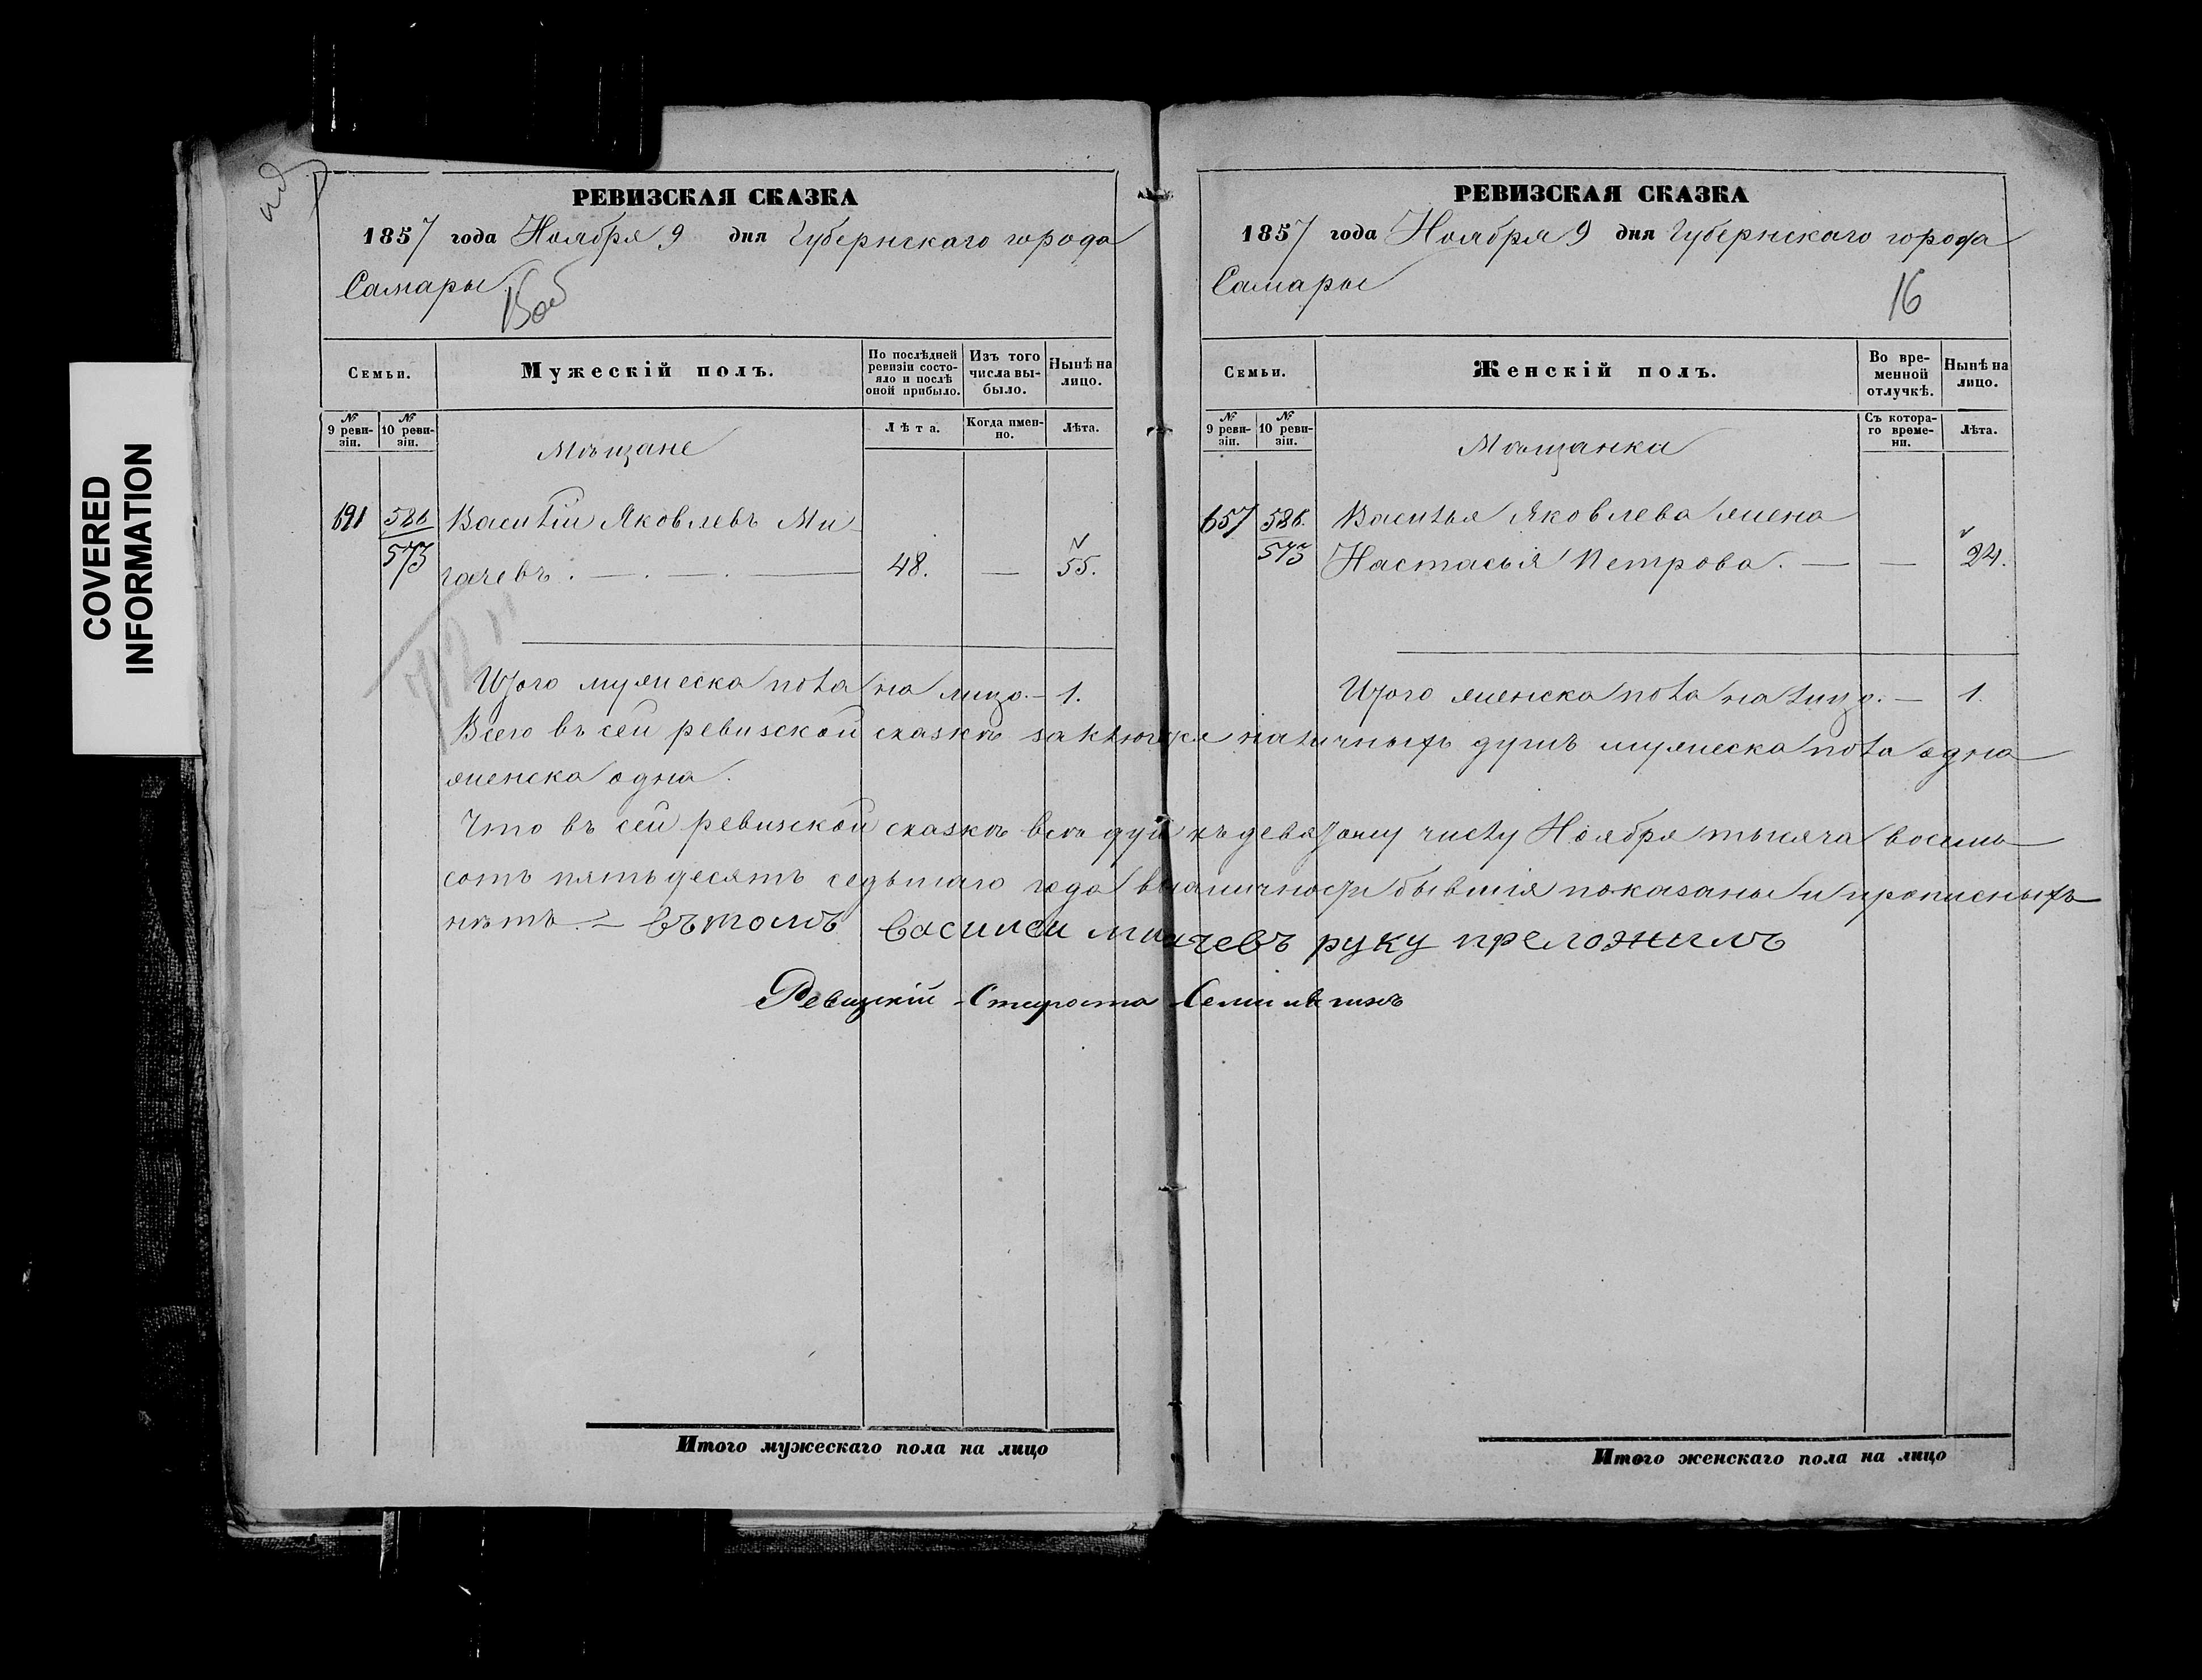 COVERED
INFORMATION
РЕВИЗСКАЯ СКАЗКА
1857 года Ноября 9 дня Губернскаго города
Самары
Семьи.
Мужескій полъ.
По послѣдней ревизіи состояло и послѣ оной прибыло.
Изъ того числа выбыло.
Нынѣ на лицо.
№ 9 ревизіи.
№ 10 ревизіи.
Мѣщане
Лѣта.
Когда именно.
Лѣта.
691 586 Василій Яковлевъ Ми-
573 гачевъ. 48. — 55.
Итого мужеска пола на лицо. — 1.
РЕВИЗСКАЯ СКАЗКА
1857 года Ноября 9 дня Губернскаго города
Самары
16
Семьи.
Женскій полъ.
Во временной отлучкѣ.
Нынѣ на лицо.
№ 9 ревизіи.
№ 10 ревизіи.
Мѣщанка
Съ котораго времени.
Лѣта.
657 586. Василья Яковлева жена
573 Настасья Петрова. — — 24.
Итого женска пола на лицо. — 1.
Всего въ сей ревизской сказкѣ заключается наличныхъ душъ мужеска пола одна
женска одна.
Что въ сей ревизской сказкѣ всѣ души къ девятому числу Ноября тысяча восемь
сотъ пятьдесятъ седьмаго года въ наличности бывшія показаны и прописныхъ
нѣтъ. — вътомъ василеи мигачевъ руку преложилъ
Ревизскій Староста
Итого мужескаго пола на лицо
Итого женскаго пола на лицо